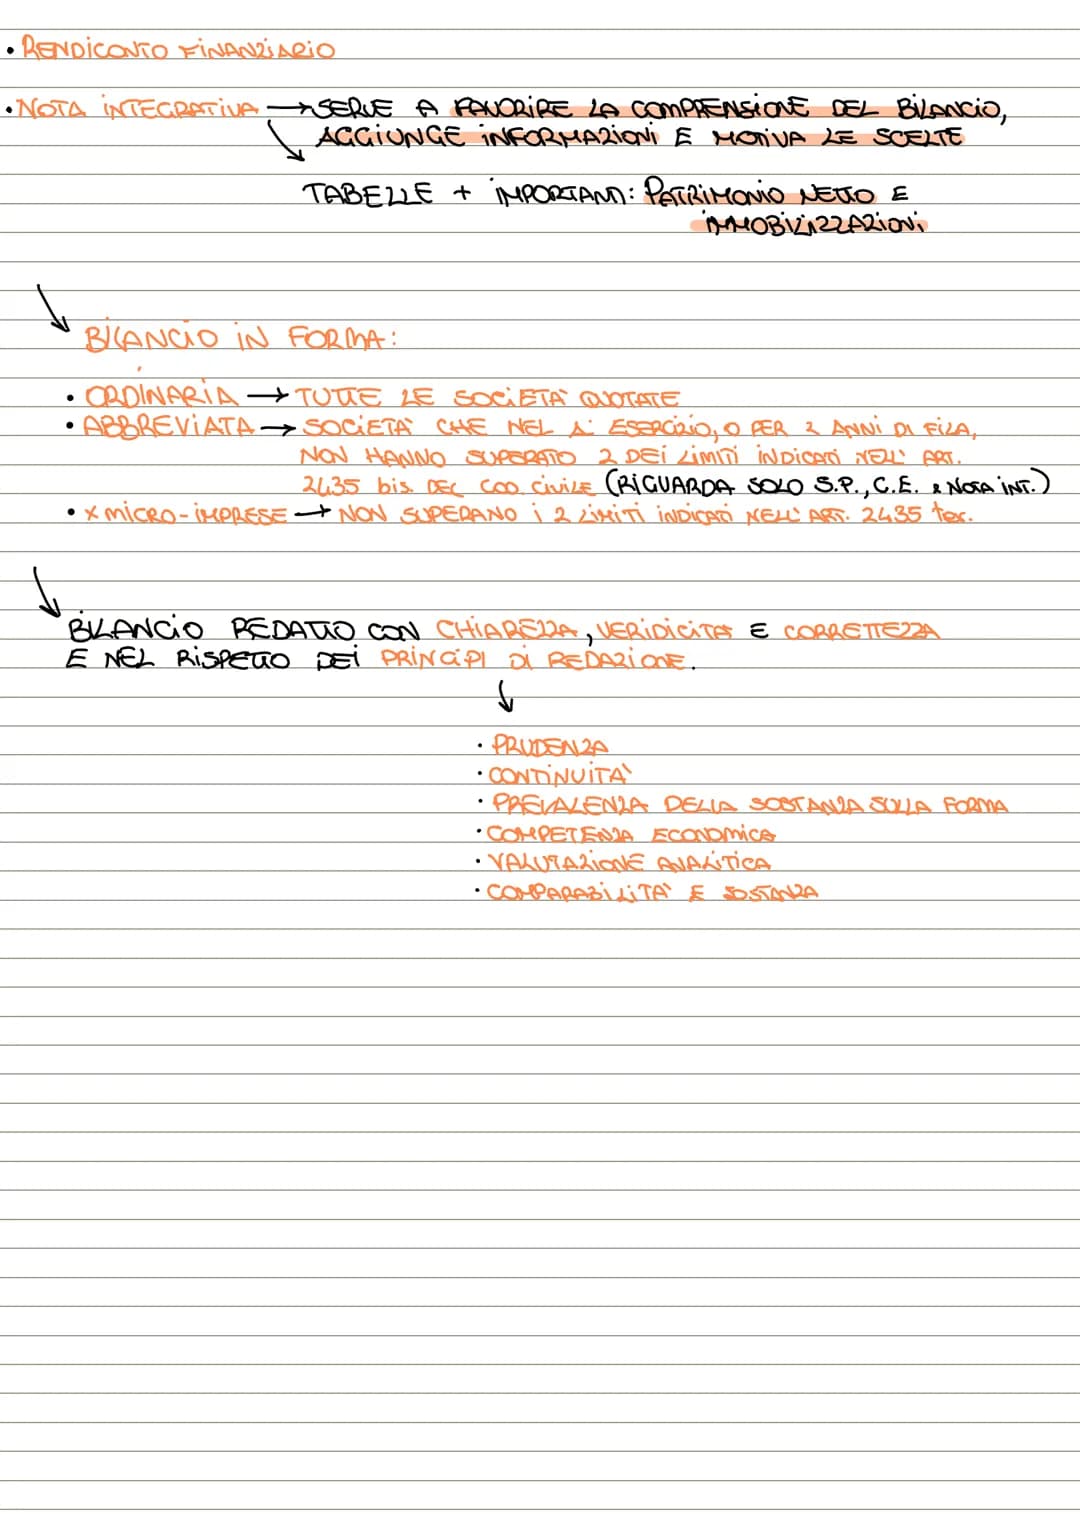 • RENDICONTO FINANZIARIO
• NOTA INTEGRATIVA → SERVE A FAVORIRE LA COMPRENSIONE DEL BILANCIO,
AGGIUNGE INFORMAZIONI E MOTIVA LE SCELTE
TABELLE + IMPORTANTI: PATRIMONIO NETTO E
IMMOBILIZZAZIONI
BILANCIO IN FORMA:
• ORDINARIA → TUTTE LE SOCIETÀ QUOTATE
• ABBREVIATA → SOCIETÀ CHE NEL 1° ESERCIZIO, O PER 2 ANNI DI FILA,
NON HANNO SUPERATO 2 DEI LIMITI INDICATI NELL' ART.
2435 bis. DEL COD. CIVILE (RIGUARDA SOLO S.P., C.E. & NOTA INT.)
• X MICRO-IMPRESE → NON SUPERANO I 2 LIMITI INDICATI NELL' ART. 2435 ter.
BILANCIO REDATTO CON CHIAREZZA, VERIDICITÀ E CORRETTEZZA
E NEL RISPETTO DEI PRINCIPI DI REDAZIONE.
• PRUDENZA
• CONTINUITÀ
• PREVALENZA DELLA SOSTANZA SULLA FORMA
• COMPETENZA ECONOMICA
• VALUTAZIONE ANALITICA
• COMPARABILITÀ E SOSTANZA